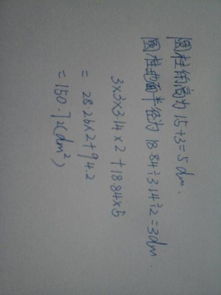 圆柱的高为 15÷3=5dm.
圆柱地面半径为 18.84÷3.14÷2=3dm
3×3×3.14×2+18.84×5
=28.26×2+94.2
=150.72(dm²)